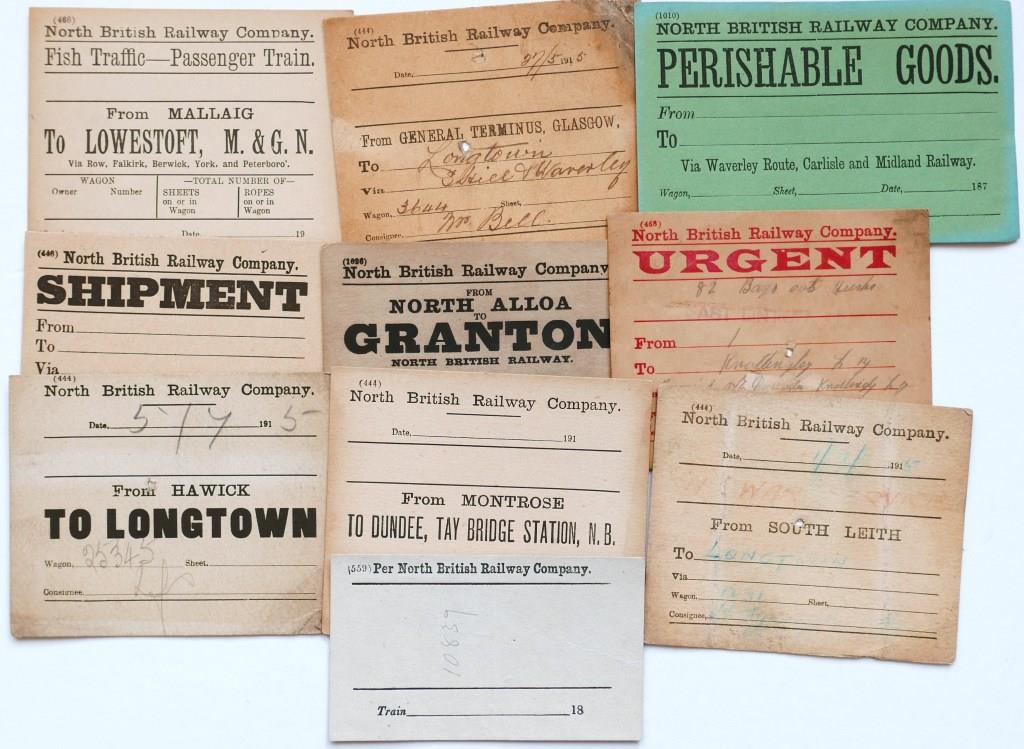 (466)
North British Railway Company.
Fish Traffic—Passenger Train.
From MALLAIG
To LOWESTOFT, M. & G. N.
Via Row, Falkirk, Berwick, York, and Peterboro'.
WAGON
Owner Number
—TOTAL NUMBER OF—
SHEETS on or in Wagon
ROPES on or in Wagon
Date 19
(444)
North British Railway Company.
Date, 27/5 1915
From GENERAL TERMINUS, GLASGOW,
To Longtown
Via Waverley
Wagon, 3644 Sheet,
Consignee, Mr. Bell.
(1010)
NORTH BRITISH RAILWAY COMPANY.
PERISHABLE GOODS.
From
To
Via Waverley Route, Carlisle and Midland Railway.
Wagon, Sheet, Date, 187
(446) North British Railway Company.
SHIPMENT
From
To
Via
(1026)
North British Railway Company
FROM
NORTH ALLOA
TO
GRANTON
NORTH BRITISH RAILWAY.
(468)
North British Railway Company.
URGENT
82 Bags
From
To Knottingley
(444)
North British Railway Company.
Date, 5/7 1915
From HAWICK
TO LONGTOWN
Wagon, 25345 Sheet,
Consignee,
(444)
North British Railway Company.
Date, 191
From MONTROSE
TO DUNDEE, TAY BRIDGE STATION, N. B.
(444)
North British Railway Company.
Date, 191
From SOUTH LEITH
To
Via
Wagon, Sheet,
Consignee,
(559) Per North British Railway Company.
10839
Train 18